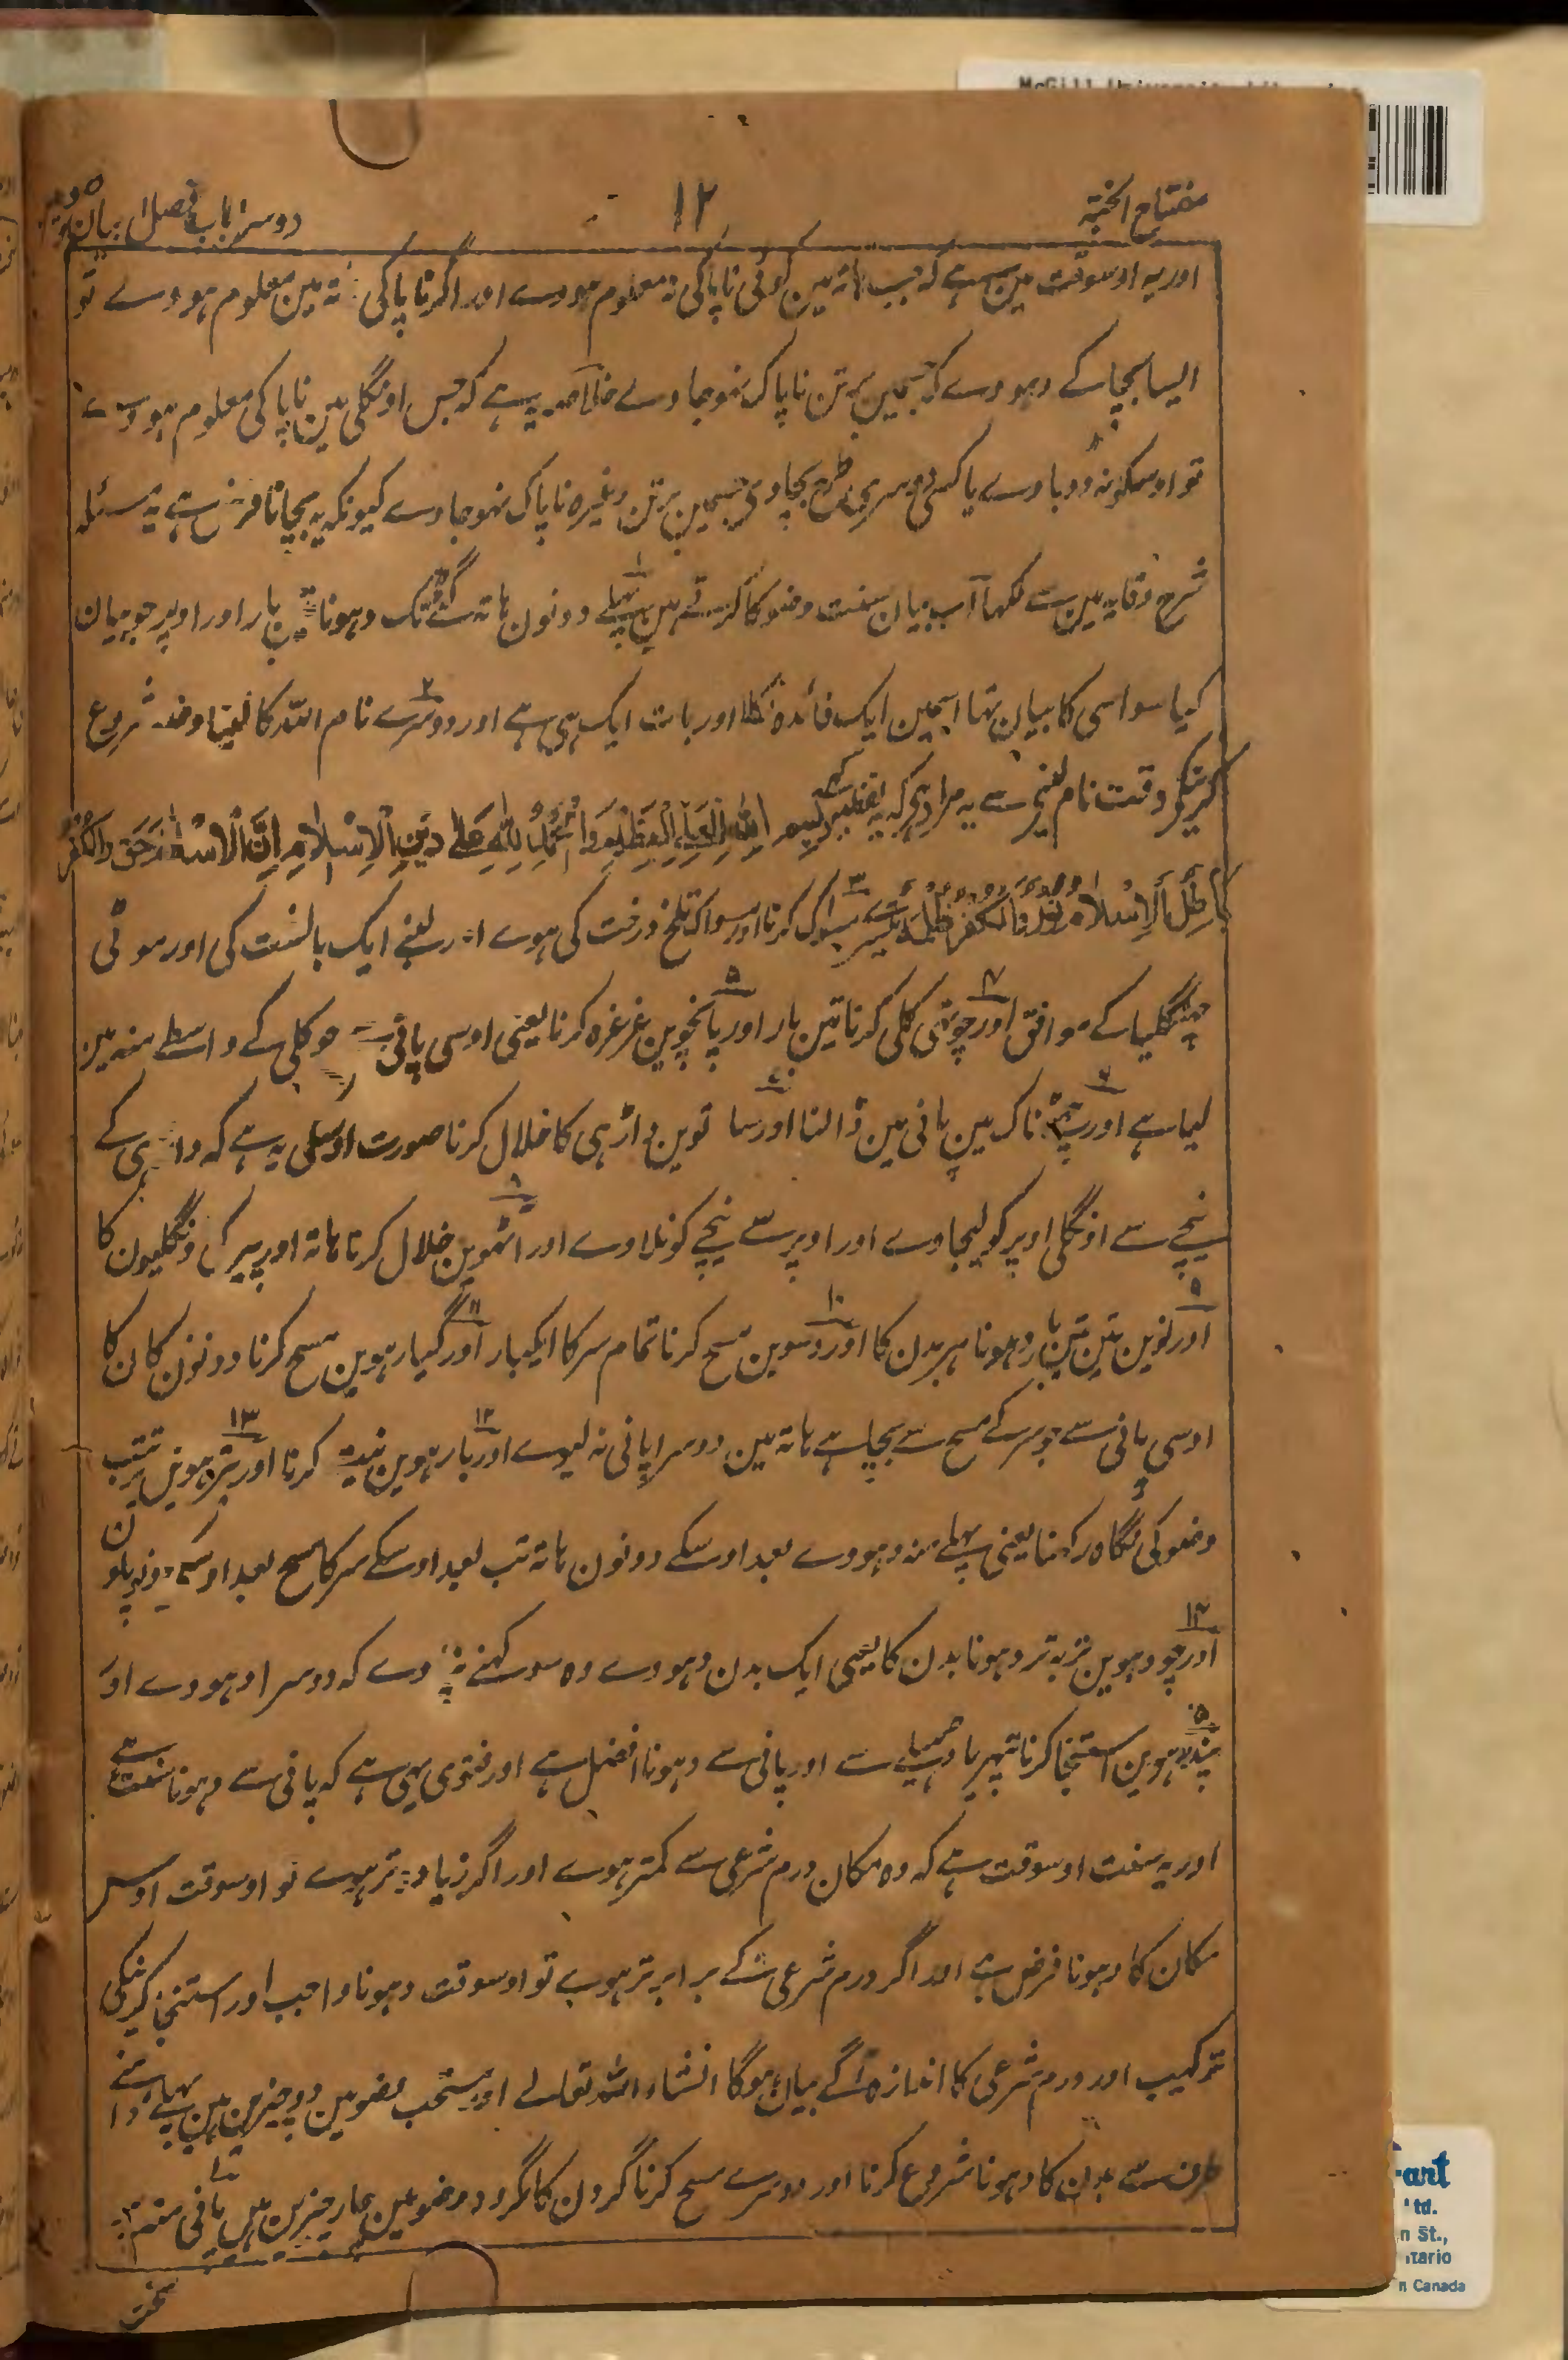 McGill University Libraries
مفتاح الجنۃ
۱۲
دوسرا باب فصل بیان
اور یہ اوسوقت مین ہے کہ جب ہاتہ مین کوئی ناپاکی نہ معلوم ہووے اور اگر ناپاکی ہاتہ مین معلوم ہووے تو
ایسا بچا کے دہووے کہ جسمین برتن ناپاک نہو جاوے خلاصہ یہ ہے کہ جس اونگلی مین ناپاکی معلوم ہووے
تو اوسکو نہ ڈوباوے یا کسی دوسری طرح بچاوی جسمین برتن وغیرہ ناپاک نہو جاوے کیونکہ یہ بچانا فرض ہے یہ مسئلہ
شرح وقایہ مین ہے لکہا اب بیان سنت وضو کا کرتے ہین پہلے دونون ہاتہ گٹے تک دہونا تین بار اور اوپر جو بیان
کیا سو اسی کا بیان تہا اسمین ایک فائدہ نکلا اور بات ایک ہی ہے اور دوسرے نام اللہ کا لینا وضو شروع
کرنیکے وقت نام لینے سے یہ مراد ہی کہ یہ لفظ کہے بِسْمِ اللّٰہِ الْعَلِیِّ الْعَظِیْمِ وَالْحَمْدُ لِلّٰہِ عَلٰی دِیْنِ الْاِسْلَامِ اِنَّ الْاِسْلَامَ حَقٌّ وَالْکُفْرُ
بَاطِلٌ اَلْاِسْلَامُ نُوْرٌ وَالْکُفْرُ ظُلْمَۃٌ تیسرے مسواک کرنا اور مسواک تلخ درخت کی ہوے اور لنبے ایک بالشت کی اور موٹی
چہنگلیا کے موافق اور چوتہی کلی کرنا تین بار اور پانچوین غرغرہ کرنا یعنی اوسی پانی سے جو کلی کے واسطے منہ مین
لیا ہے اور چہٹے ناک مین پانی مین ڈالنا اور ساتوین داڑہی کا خلال کرنا صورت اوسکی یہ ہے کہ داڑہی کے
نیچے سے اونگلی اوپر کو لیجاوے اور اوپر سے نیچے کو نلاوے اور اٹہوین خلال کرنا ہاتہ اور پیر کی اونگلیون کا
اور نوین تین تین بار دہونا ہر بدن کا اور دسوین مسح کرنا تمام سر کا ایکبار اور گیارہوین مسح کرنا دونون کان کا
اوسی پانی سے جو سر کے مسح سے بچا ہے ہاتہ مین دوسرا پانی نہ لیوے اور بارہوین نیت کرنا اور تیرہوین ترتیب
وضو کی نگاہ رکہنا یعنی پہلے منہ دہووے بعد اوسکے دونون ہاتہ تب بعد اوسکے سر کا مسح بعد اوسکے دونو پانون
اور چودہوین تر بہ تر دہونا بدن کا یعنی ایک بدن دہووے وہ سوکہنے نہ پاوے کہ دوسرا دہووے اور
پندرہوین استنجا کرنا پتہر یا ڈہیلے سے اور پانی سے دہونا افضل ہے اور فتوی یہی ہے کہ پانی سے دہونا سنت ہے
اور یہ سنت اوسوقت ہے کہ وہ مکان درم شرعی سے کمتر ہوے اور اگر زیادہ تر ہوے تو اوسوقت اوس
مکان کا دہونا فرض ہے اور اگر درم شرعی کے برابر تر ہوے تو اوسوقت دہونا واجب اور استنجا کرنیکی
ترکیب اور درم شرعی کا اندازہ آگے بیان ہوگا انشاء اللہ تعالے اور مستحب وضو مین دو چیزین ہین پہلے داہنے
طرف سے بدن کا دہونا شروع کرنا اور دوسرے مسح کرنا گردن کا مکروہ وضو مین چار چیزین ہین پانی منہ
سخت
art
Ltd.
n St.,
ntario
n Canada